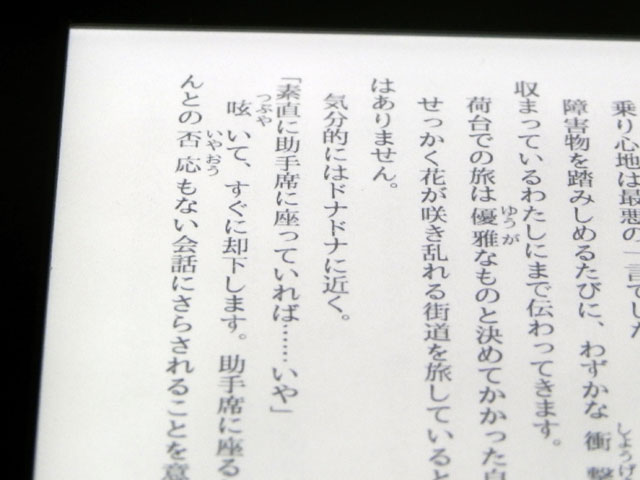 乗り心地は最悪の一言でした
障害物を踏みしめるたびに、わずかな衝撃
収まっているわたしにまで伝わってきます。
荷台での旅は優雅なものと決めてかかった自
せっかく花が咲き乱れる街道を旅していると
はありません。
気分的にはドナドナに近く。
「素直に助手席に座っていれば……いや」
呟いて、すぐに却下します。助手席に座る
んとの否応もない会話にさらされることを意